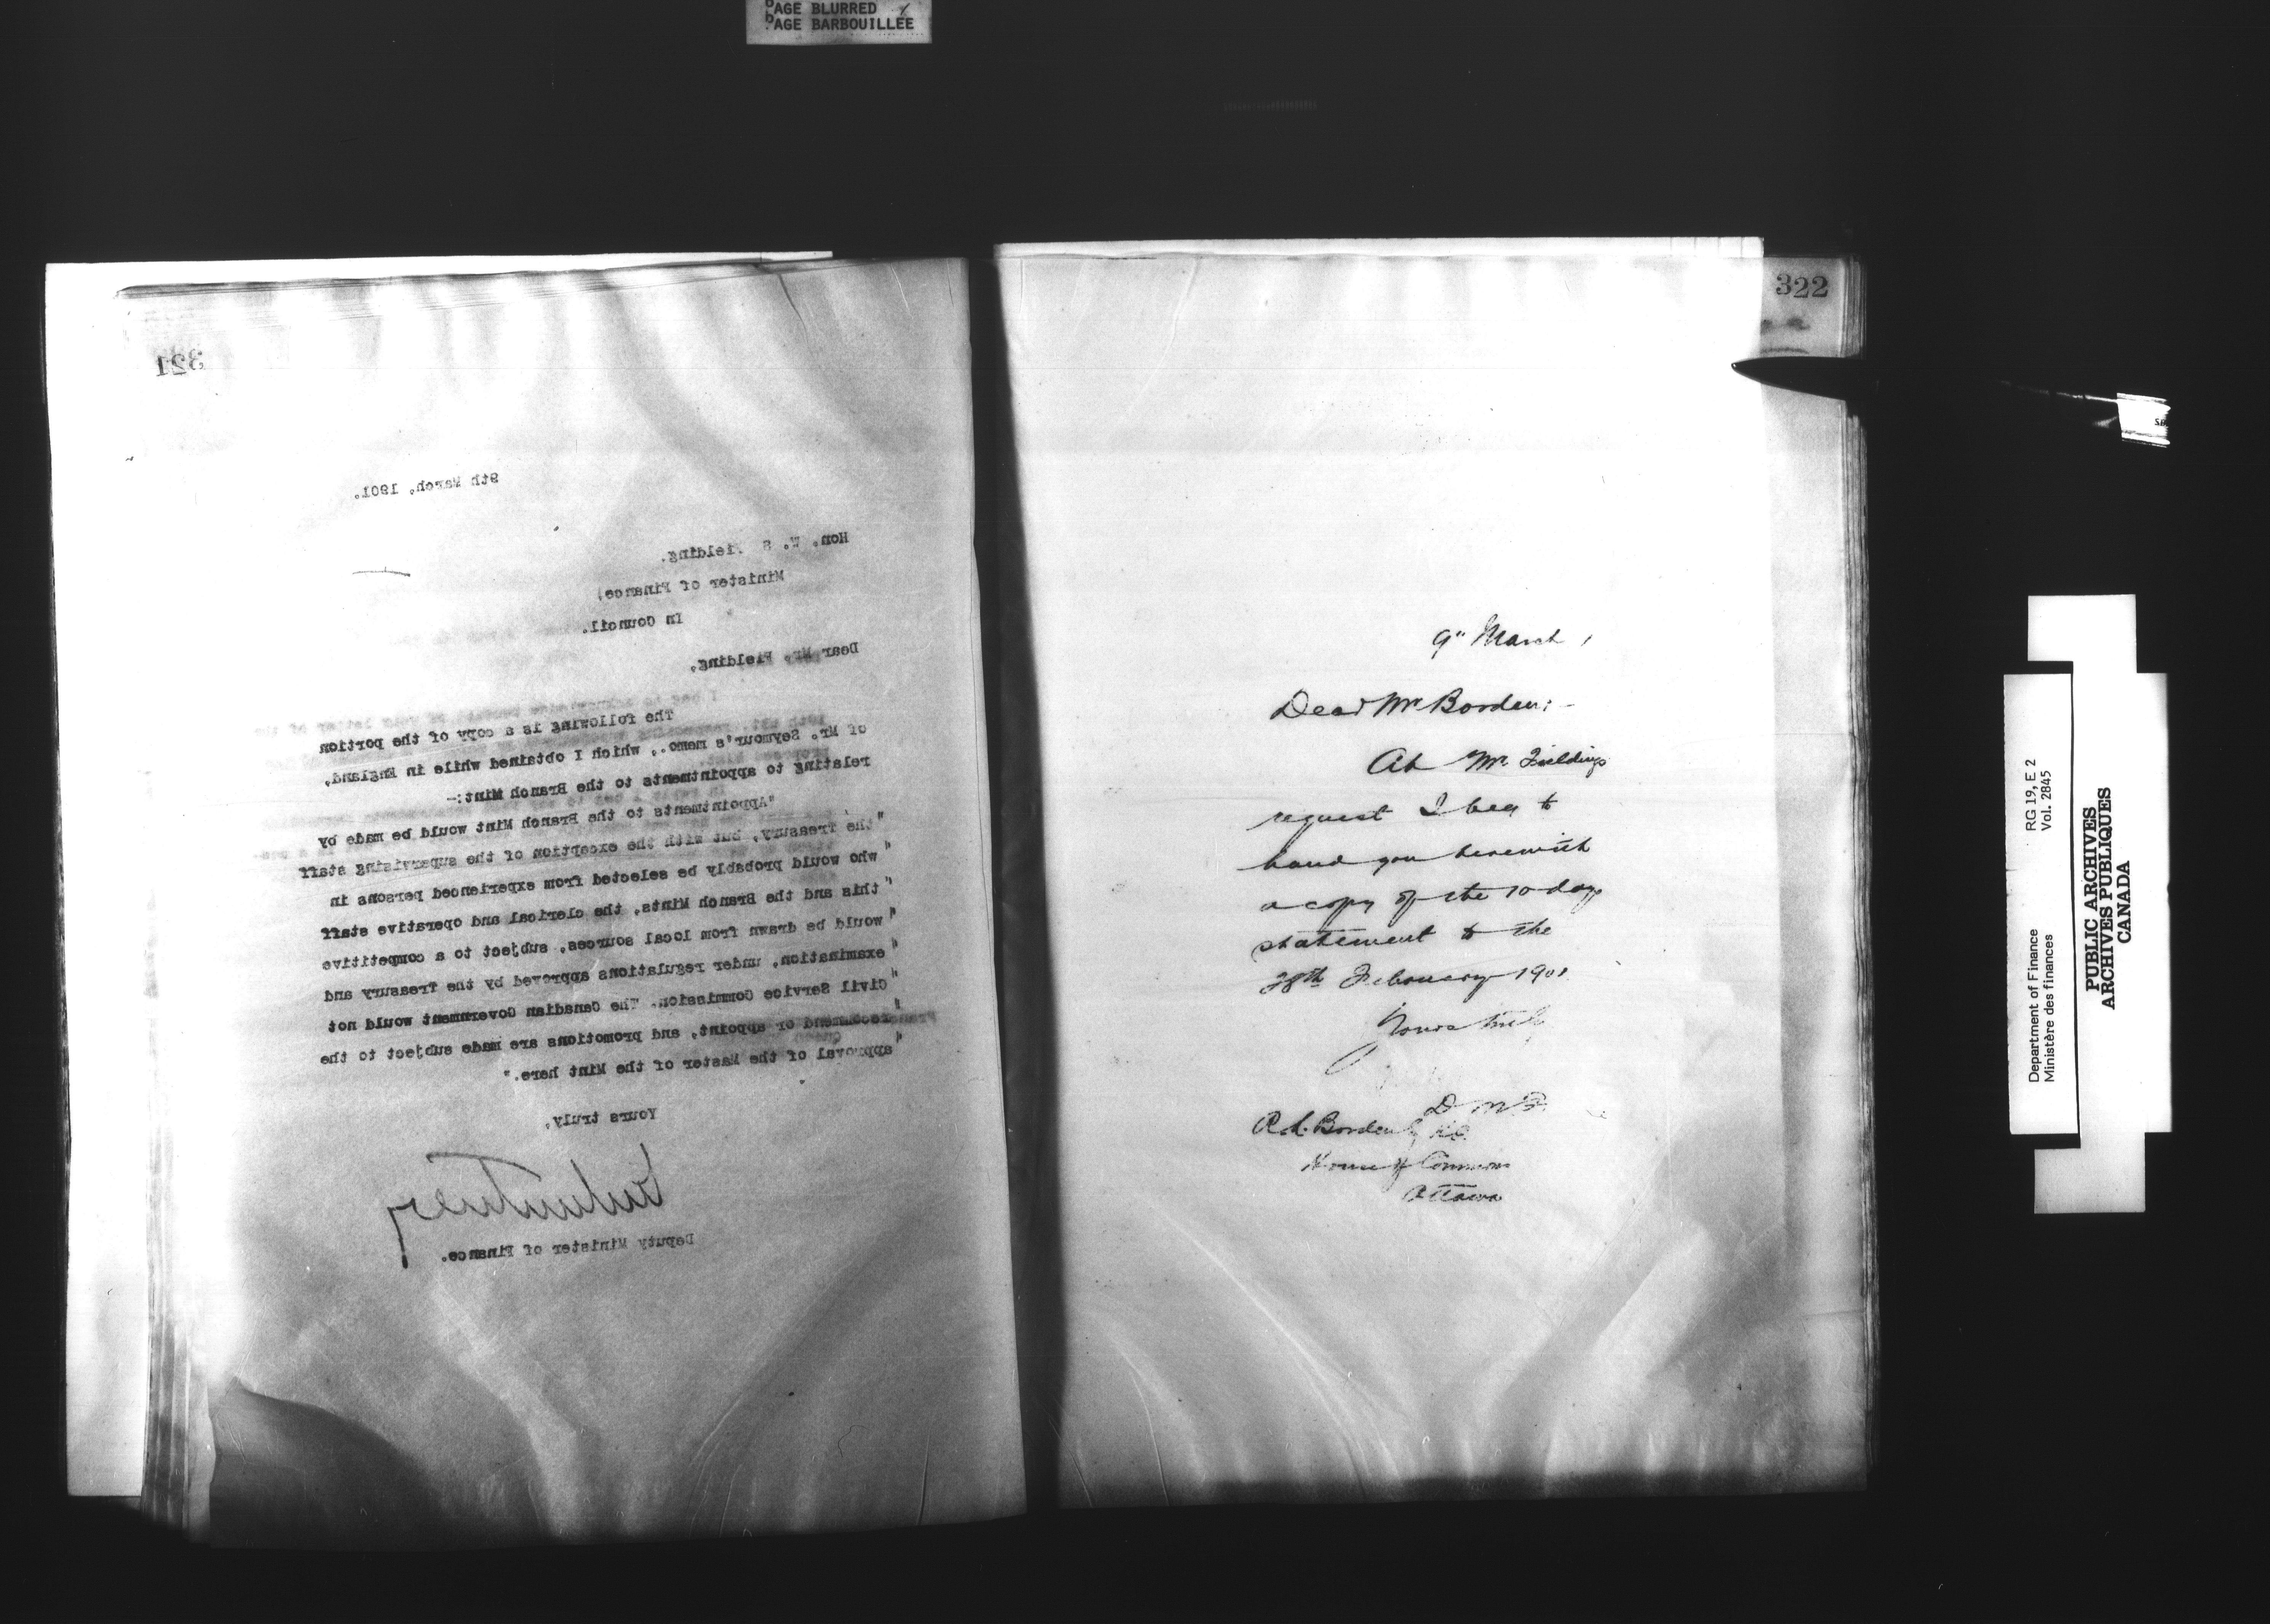 PAGE BLURRED
PAGE BARBOUILLÉE
321
9th March, 1901.
Hon. W. S. Fielding.
Minister of Finance,
In Council.
Dear Mr. Fielding,
The following is a copy of the portion
of Mr. Seymour's memo., which I obtained while in England,
relating to appointments to the Branch Mint:-
"Appointments to the Branch Mint would be made by
"the Treasury, but with the exception of the supervising staff
"who would probably be selected from experienced persons in
"this and the Branch Mints, the clerical and operative staff
"would be drawn from local sources, subject to a competitive
"examination, under regulations approved by the Treasury and
"Civil Service Commission. The Canadian Government would not
"recommend or appoint, and promotions are made subject to the
"approval of the Master of the Mint here."
Yours truly,
Deputy Minister of Finance.
322
9" March 1
Dear Mr Borden:-
At Mr. Fieldings
request I beg to
hand you herewith
a copy of the 10 days
statement to the
28th February 1901
Yours truly
D M F.
R. L. Borden Esq K.C.
House of Commons
Ottawa
Department of Finance RG 19, E 2
Ministère des finances Vol. 2845
PUBLIC ARCHIVES
ARCHIVES PUBLIQUES
CANADA